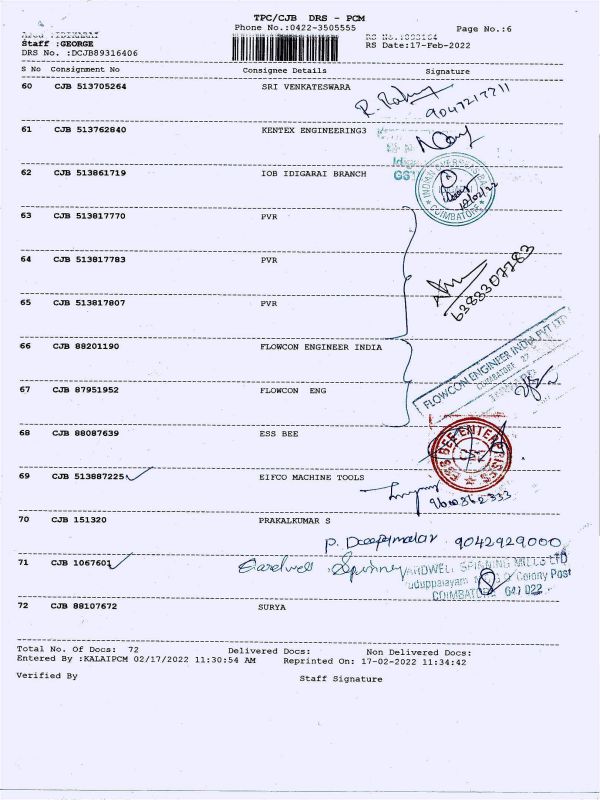 TPC/CJB DRS - PCM
Phone No.:0422-3505555
Page No.:6
Staff :GEORGE
RS Date:17-Feb-2022
DRS No. :DCJB89316406
S No Consignment No Consignee Details Signature
60 CJB 513705264 SRI VENKATESWARA
9047217711
61 CJB 513762840 KENTEX ENGINEERING3
62 CJB 513861719 IOB IDIGARAI BRANCH
GST
INDIAN OVERSEAS BANK
COIMBATORE
63 CJB 513817770 PVR
64 CJB 513817783 PVR
6383307783
65 CJB 513817807 PVR
66 CJB 88201190 FLOWCON ENGINEER INDIA
FLOWCON ENGINEER INDIA PVT LTD
COIMBATORE 27
67 CJB 87951952 FLOWCON ENG
68 CJB 88087639 ESS BEE
ESS BEE ENTERPRISES
69 CJB 513887225 EIFCO MACHINE TOOLS
9600362333
70 CJB 151320 PRAKALKUMAR S
P. Deepamalar 9042929000
71 CJB 1067601 Cardwell Spinning
CARDWELL SPINNING MILLS LTD
Colony Post
COIMBATORE 641 022
72 CJB 88107672 SURYA
Total No. Of Docs: 72 Delivered Docs: Non Delivered Docs:
Entered By :KALAIPCM 02/17/2022 11:30:54 AM Reprinted On: 17-02-2022 11:34:42
Verified By Staff Signature